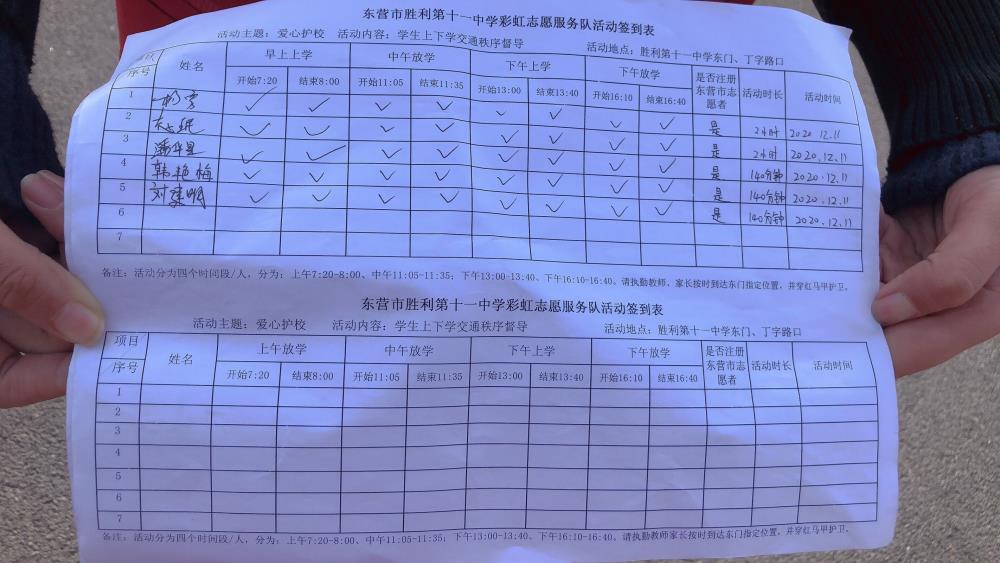 东营市胜利第十一中学彩虹志愿服务队活动签到表
活动主题：爱心护校 活动内容：学生上下学交通秩序督导 活动地点：胜利第十一中学东门、丁字路口
序号 姓名 早上上学 中午放学 下午上学 下午放学 是否注册东营市志愿者 活动时长 活动时间
开始7:20 结束8:00 开始11:05 结束11:35 开始13:00 结束13:40 开始16:10 结束16:40
1 ✓ ✓ ✓ ✓ ✓ ✓ ✓ ✓ 是 2小时 2020.12.11
2 ✓ ✓ ✓ ✓ ✓ ✓ ✓ ✓ 是 2小时 2020.12.11
3 ✓ ✓ ✓ ✓ ✓ ✓ ✓ ✓ 是 140分钟 2020.12.11
4 韩艳梅 ✓ ✓ ✓ ✓ ✓ ✓ ✓ ✓ 是 140分钟 2020.12.11
5 刘 明 ✓ ✓ ✓ ✓ ✓ ✓ ✓ ✓ 是 140分钟 2020.12.11
6
7
备注：活动分为四个时间段/人，分为：上午7:20-8:00、中午11:05-11:35；下午13:00-13:40、下午16:10-16:40。请执勤教师、家长按时到达东门指定位置，并穿红马甲护卫。
东营市胜利第十一中学彩虹志愿服务队活动签到表
活动主题：爱心护校 活动内容：学生上下学交通秩序督导 活动地点：胜利第十一中学东门、丁字路口
项目 序号 姓名 上午放学 中午放学 下午上学 下午放学 是否注册东营市志愿者 活动时长 活动时间
开始7:20 结束8:00 开始11:05 结束11:35 开始13:00 结束13:40 开始16:10 结束16:40
1
2
3
4
5
6
7
备注：活动分为四个时间段/人，分为：上午7:20-8:00、中午11:05-11:35；下午13:00-13:40、下午16:10-16:40。请执勤教师家长按时到达东门指定位置，并穿红马甲护卫。